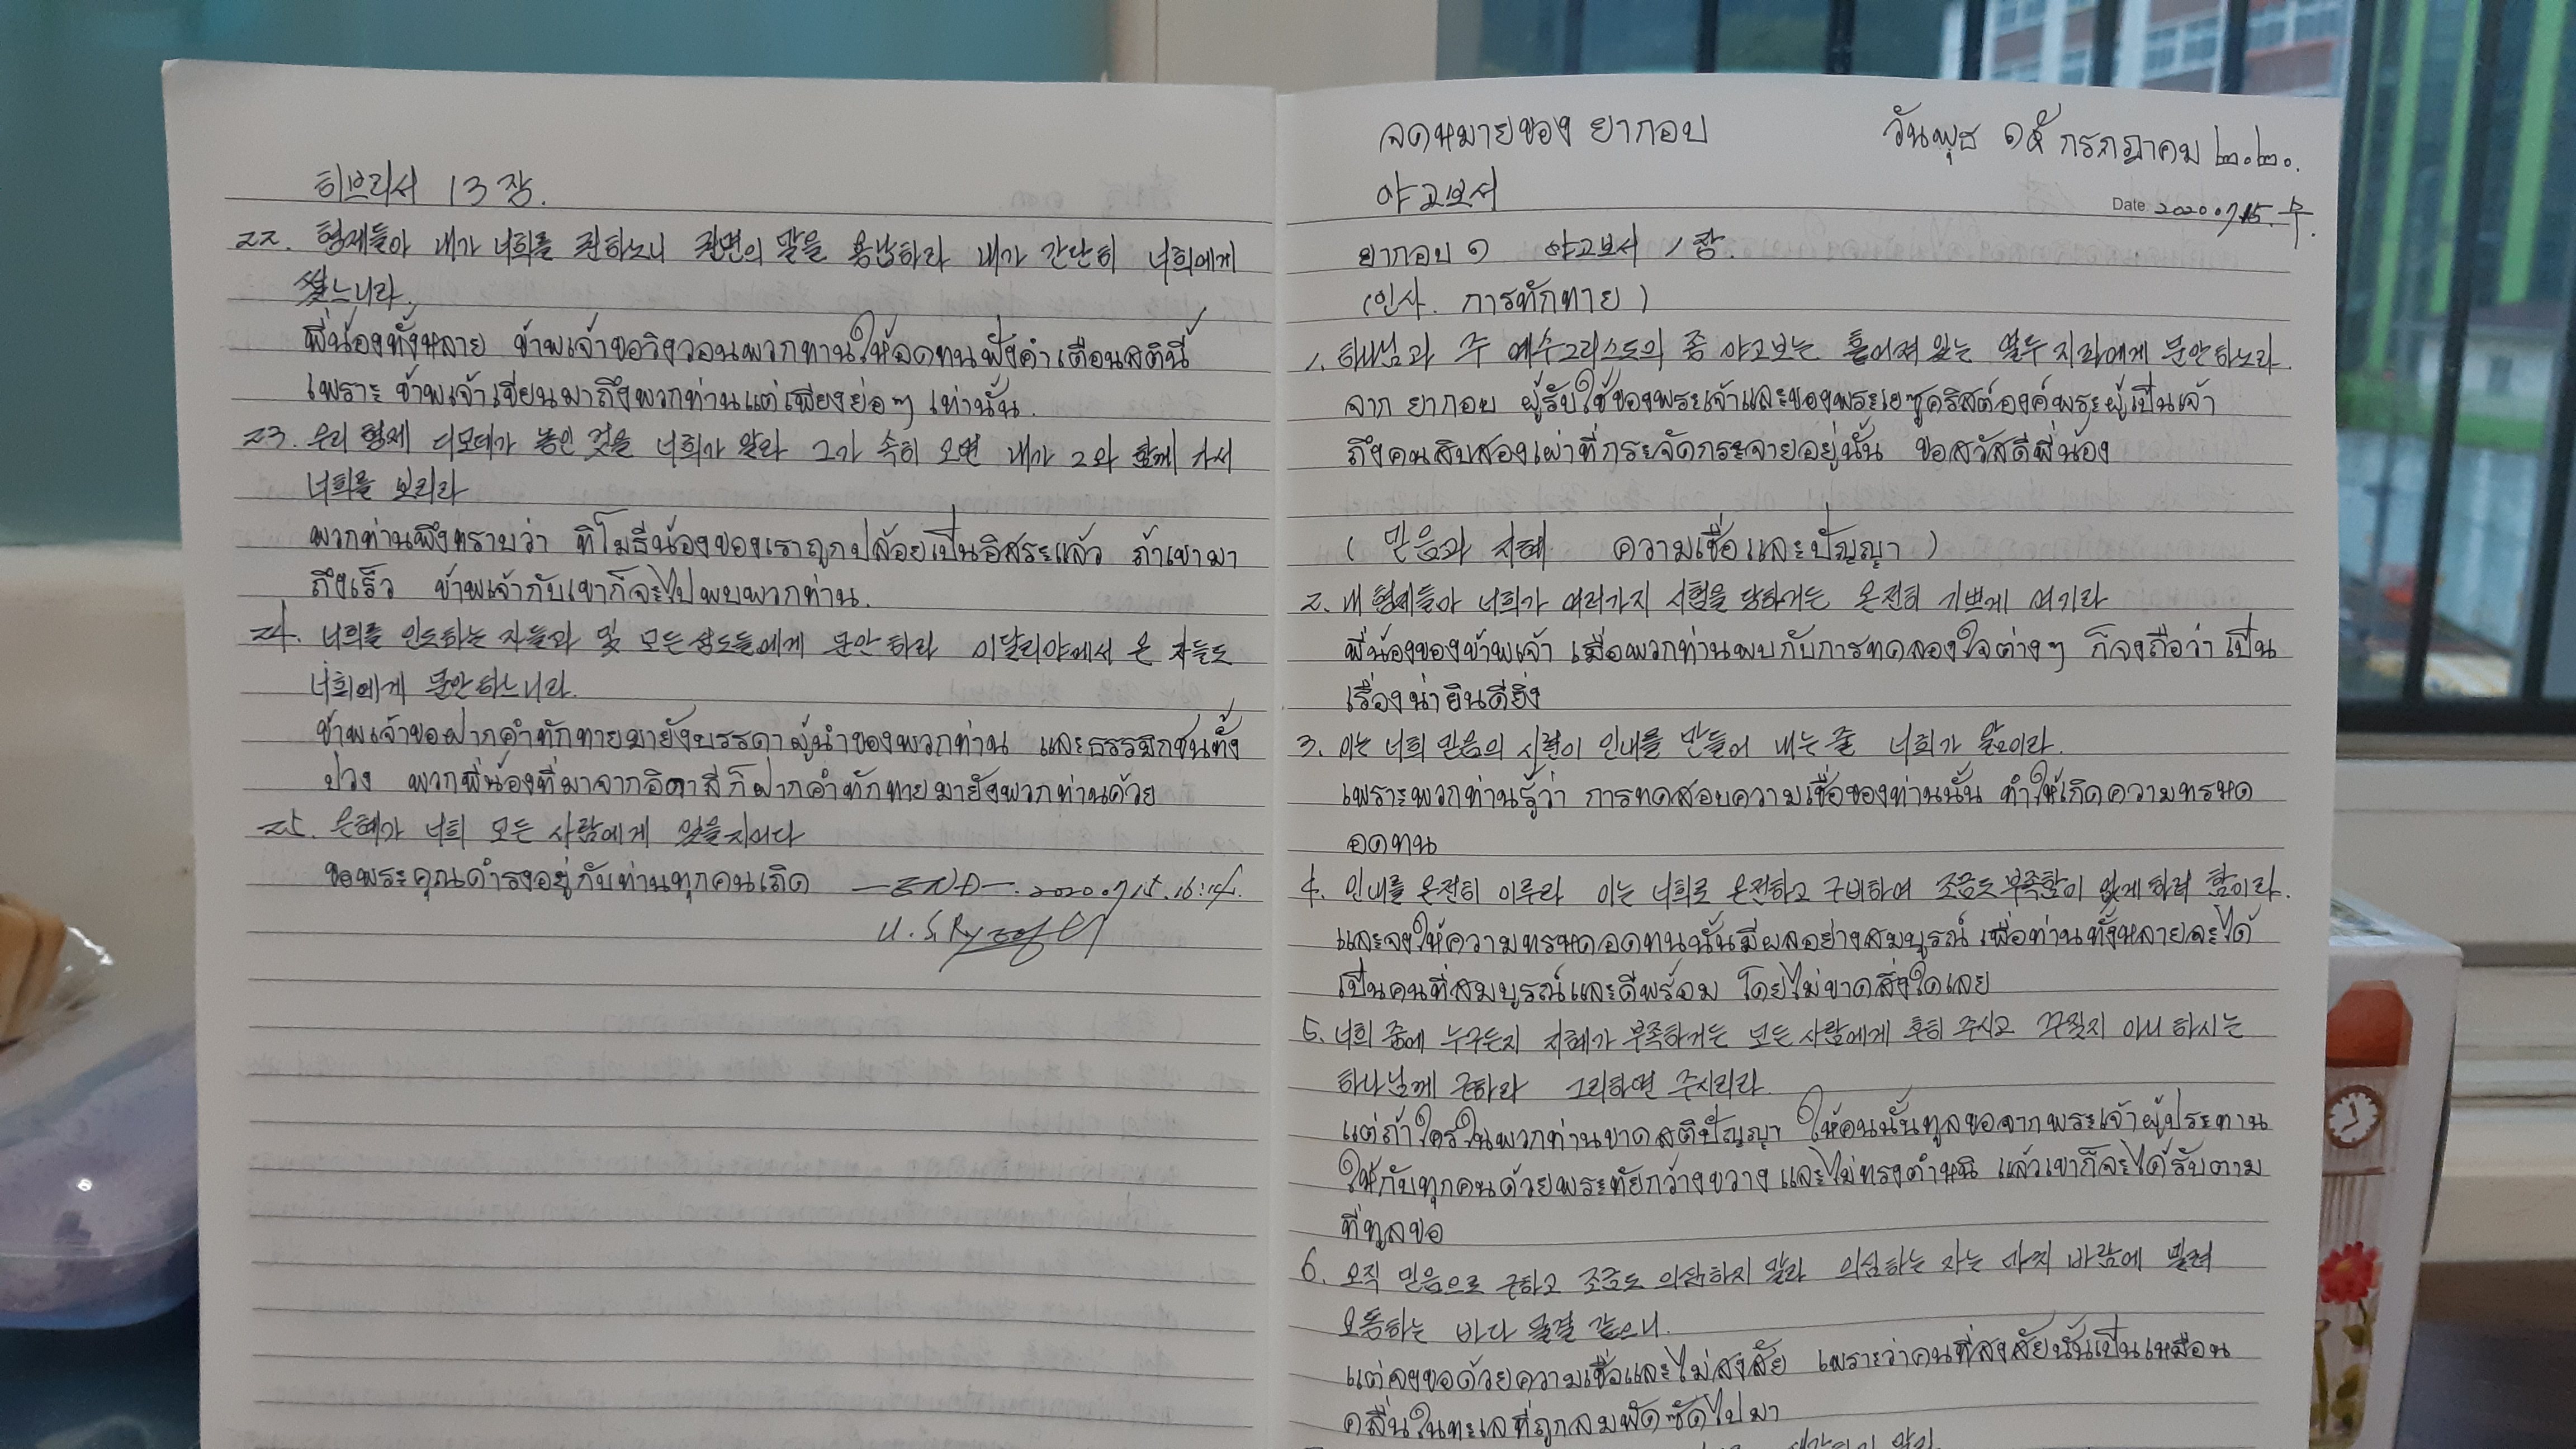 히브리서 13장.
22. 형제들아 내가 너희를 권하노니 권면의 말을 용납하라 내가 간단히 너희에게
썼느니라.
พี่น้องทั้งหลาย ข้าพเจ้าขอวิงวอนพวกท่านให้อดทนฟังคำเตือนสตินี้
เพราะ ข้าพเจ้าเขียนมาถึงพวกท่านแต่เพียงย่อๆ เท่านั้น.
23. 우리 형제 디모데가 놓인 것을 너희가 알라 그가 속히 오면 내가 그와 함께 가서
너희를 보리라
พวกท่านพึงทราบว่า ทิโมธีน้องของเราถูกปล้อยเป็นอิสระแล้ว ถ้าเขามา
ถึงเร็ว ข้าพเจ้ากับเขาก็จะไปพบพวกท่าน.
24. 너희를 인도하는 자들과 및 모든 성도들에게 문안 하라 이달리야에서 온 자들도
너희에게 문안 하느니라.
ข้าพเจ้าขอฝากคำทักทายมายังบรรดาผู้นำของพวกท่าน และธรรมิกชนทั้ง
ปวง พวกพี่น้องที่มาจากอิตาลีก็ฝากคำทักทายมายังพวกท่านด้วย
25. 은혜가 너희 모든 사람에게 있을지어다
ขอพระคุณดำรงอยู่กับท่านทุกคนเถิด —END—. 2020 07 15. 16:14.
จดหมายของ ยากอบ วันพุธ ๑๕ กรกฎาคม ๒๐๒๐.
야고보서
Date. 2020 07 15. 수.
ยากอบ ๑ 야고보서 1장.
(인사. การทักทาย)
1. 하나님과 주 예수그리스도의 종 야고보는 흩어져 있는 열두 지파에게 문안하노라.
จาก ยากอบ ผู้รับใช้ของพระเจ้าและของพระเยซูคริสต์องค์พระผู้เป็นเจ้า
ถึงคนสิบสองเผ่าที่กระจัดกระจายอยู่นั้น ขอสวัสดีพี่น้อง
(믿음과 지혜 ความเชื่อและปัญญา)
2. 내 형제들아 너희가 여러가지 시험을 당하거든 온전히 기쁘게 여기라
พี่น้องของข้าพเจ้า เมื่อพวกท่านพบกับการทดลองใจต่างๆ ก็จงถือว่าเป็น
เรื่องน่ายินดียิ่ง
3. 이는 너희 믿음의 시련이 인내를 만들어 내는 줄 너희가 앎이라.
เพราะพวกท่านรู้ว่า การทดสอบความเชื่อของท่านนั้น ทำให้เกิดความทรหด
อดทน
4. 인내를 온전히 이루라 이는 너희로 온전하고 구비하여 조금도 부족함이 없게 하려 함이라.
และจงให้ความทรหดอดทนนั้นมีผลอย่างสมบูรณ์ เพื่อท่านทั้งหลายจะได้
เป็นคนที่สมบูรณ์และดีพร้อม โดยไม่ขาดสิ่งใดเลย
5. 너희 중에 누구든지 지혜가 부족하거든 모든 사람에게 후히 주시고 꾸짖지 아니 하시는
하나님께 구하라 그리하면 주시리라.
แต่ถ้าใครในพวกท่านขาดสติปัญญา ให้คนนั้นทูลขอจากพระเจ้าผู้ประทาน
ให้กับทุกคนด้วยพระทัยกว้างขวาง และไม่ทรงตำหนิ แล้วเขาก็จะได้รับตาม
ที่ทูลขอ
6. 오직 믿음으로 구하고 조금도 의심하지 말라 의심하는 자는 마치 바람에 밀려
요동하는 바다 물결 같으니.
แต่จงขอด้วยความเชื่อและไม่สงสัย เพราะว่าคนที่สงสัยนั้นเป็นเหมือน
คลื่นในทะเลที่ถูกลมพัดซัดไปมา